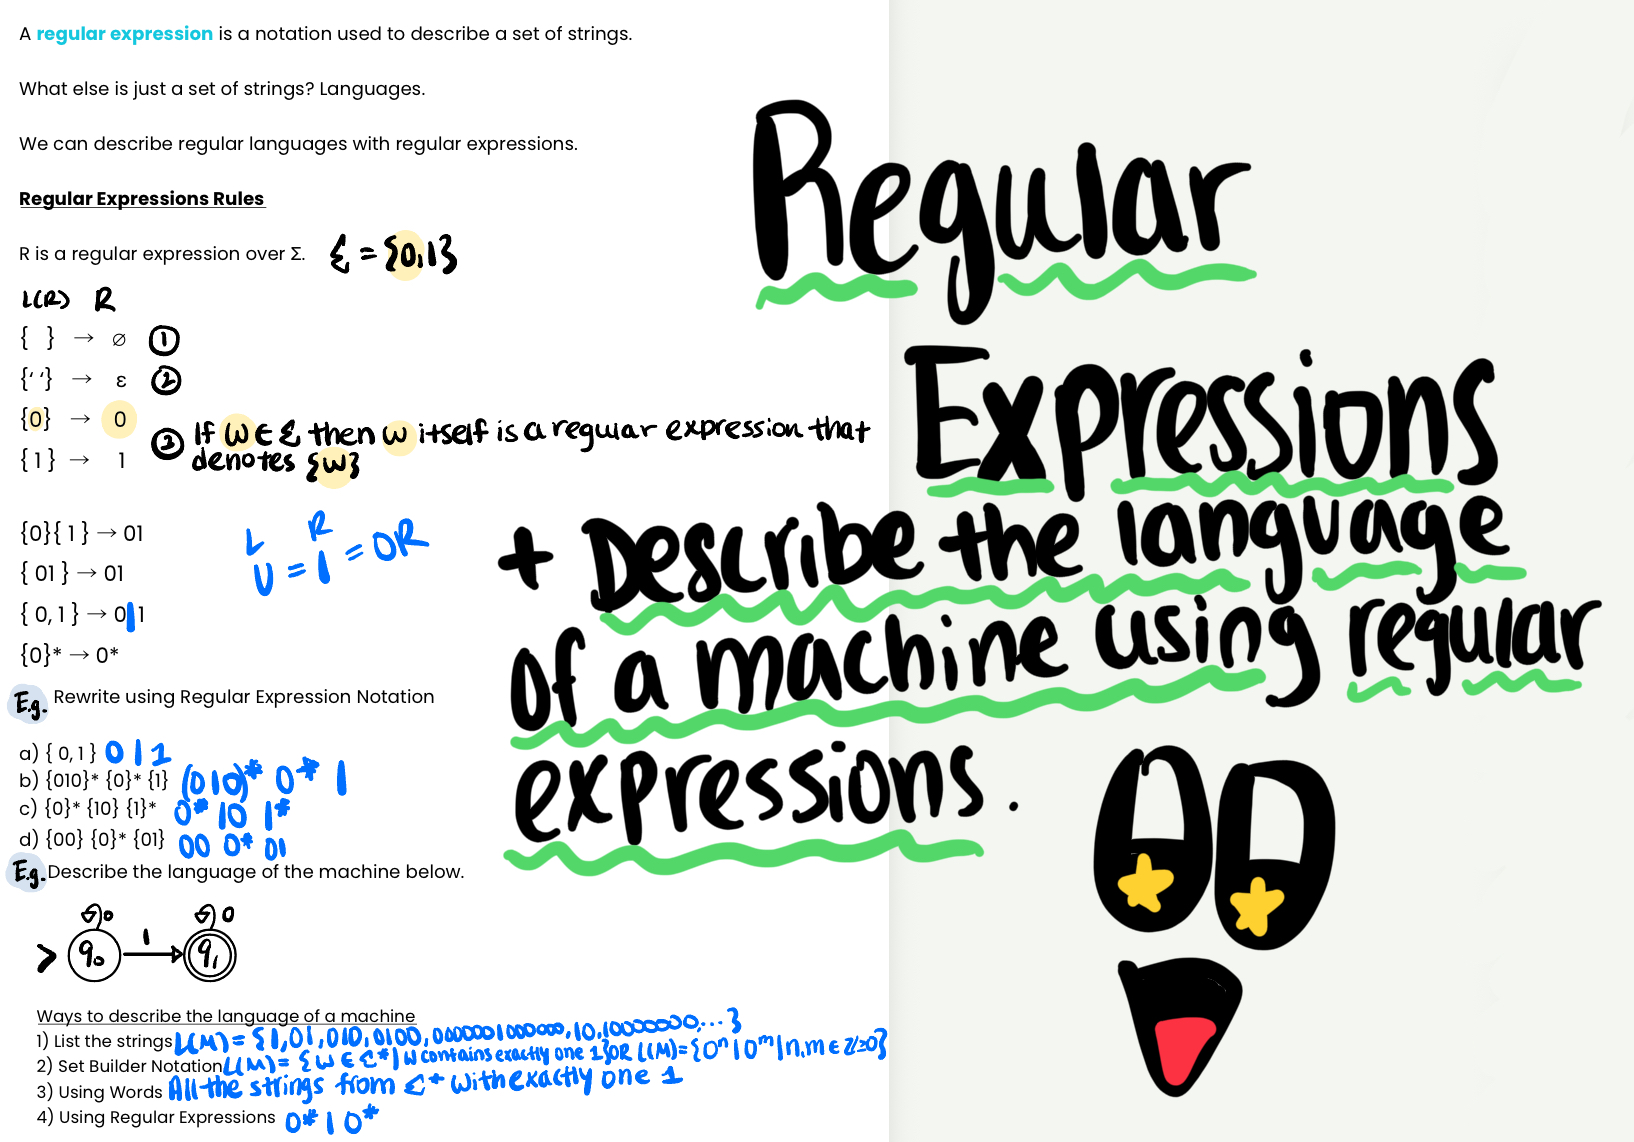 A regular expression is a notation used to describe a set of strings.
What else is just a set of strings? Languages.
We can describe regular languages with regular expressions.
Regular Expressions Rules
R is a regular expression over Σ. Σ = {0,1}
L(R) R
{ } → ∅ ①
{‘ ‘} → ε ②
{0} → 0
③ If w ∈ Σ then w itself is a regular expression that
{ 1 } → 1 denotes {w}
{0}{ 1 } → 01
{ 01 } → 01
{ 0, 1 } → 0|1
{0}* → 0*
L R
U = | = OR
E.g. Rewrite using Regular Expression Notation
a) { 0, 1 } 0 | 1
b) {010}* {0}* {1} (010)* 0* 1
c) {0}* {10} {1}* 0* 10 1*
d) {00} {0}* {01} 00 0* 01
E.g. Describe the language of the machine below.
0 0
> q₀ 1 q₁
Ways to describe the language of a machine
1) List the strings L(M) = {1,01,010,0100,0000001000000,10,10000000,...}
2) Set Builder Notation L(M) = {w ∈ Σ* | w contains exactly one 1} OR L(M) = {0ⁿ10ᵐ | n,m ∈ Z≥0}
3) Using Words All the strings from Σ* with exactly one 1
4) Using Regular Expressions 0* 1 0*
Regular
Expressions
+ Describe the language
of a machine using regular
expressions.